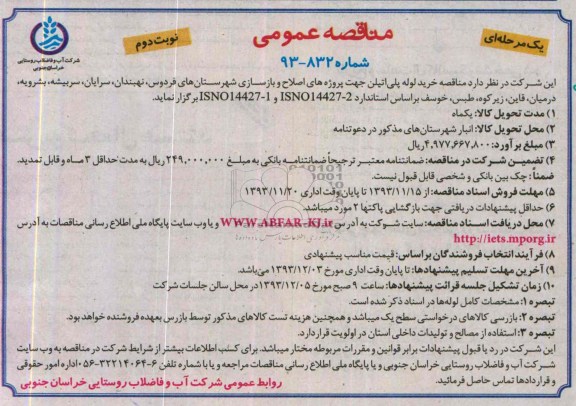 مناقصه عمومی
یک مرحله‌ای
نوبت دوم
شماره ۸۳۲-۹۳
شرکت آب و فاضلاب روستایی
خراسان جنوبی
این شرکت در نظر دارد مناقصه خرید لوله پلی‌اتیلن جهت پروژه های اصلاح و بازسازی شهرستان‌های فردوس، نهبندان، سرایان، سربیشه، بشرویه،
درمیان، قاین، زیرکوه، طبس، خوسف براساس استاندارد ISNO14427-2 و ISNO14427-1 برگزار نماید.
۱) مدت تحویل کالا: یکماه
۲) محل تحویل کالا: انبار شهرستان‌های مذکور در دعوتنامه
۳) مبلغ برآورد: ۴،۹۷۷،۶۶۷،۸۰۰ ریال
۴) تضمین شرکت در مناقصه: ضمانتنامه معتبر ترجیحاً ضمانتنامه بانکی به مبلغ ۲۴۹،۰۰۰،۰۰۰ ریال به مدت حداقل ۳ ماه و قابل تمدید.
ضمناً: چک بین بانکی و شخصی قابل قبول نیست.
۵) مهلت فروش اسناد مناقصه: از ۱۳۹۳/۱۱/۱۵ تا پایان وقت اداری ۱۳۹۳/۱۱/۲۰
۶) حداقل پیشنهادات دریافتی جهت بازگشایی پاکتها ۲ مورد میباشد.
۷) محل دریافت اسناد مناقصه: سایت شرکت به آدرس WWW.ABFAR-KJ.ir و یا وب سایت پایگاه ملی اطلاع رسانی مناقصات به آدرس
http://iets.mporg.ir
۸) فرآیند انتخاب فروشندگان براساس: قیمت مناسب پیشنهادی
۹) آخرین مهلت تسلیم پیشنهادها: تا پایان وقت اداری مورخ ۱۳۹۳/۱۲/۰۳ می‌باشد.
۱۰) زمان تشکیل جلسه قرائت پیشنهادها: ساعت ۹ صبح مورخ ۱۳۹۳/۱۲/۰۵ در محل سالن جلسات شرکت
تبصره ۱: مشخصات کامل لوله‌ها در اسناد ذکر شده است.
تبصره ۲: بازرسی کالاهای درخواستی سطح یک میباشد و همچنین هزینه تست کالاهای مذکور توسط بازرس بعهده فروشنده خواهد بود.
تبصره ۳: استفاده از مصالح و تولیدات داخلی استان در اولویت قرار دارد.
این شرکت در رد یا قبول پیشنهادات برابر قوانین و مقررات مربوطه مختار میباشد. برای کسب اطلاعات بیشتر از شرایط شرکت در مناقصه به وب سایت
شرکت آب و فاضلاب روستایی خراسان جنوبی و یا پایگاه ملی اطلاع رسانی مناقصات مراجعه و یا با شماره تلفن ۶-۳۲۲۱۴۰۶۴-۰۵۶ اداره امور حقوقی
و قراردادها تماس حاصل فرمائید.
روابط عمومی شرکت آب و فاضلاب روستایی خراسان جنوبی